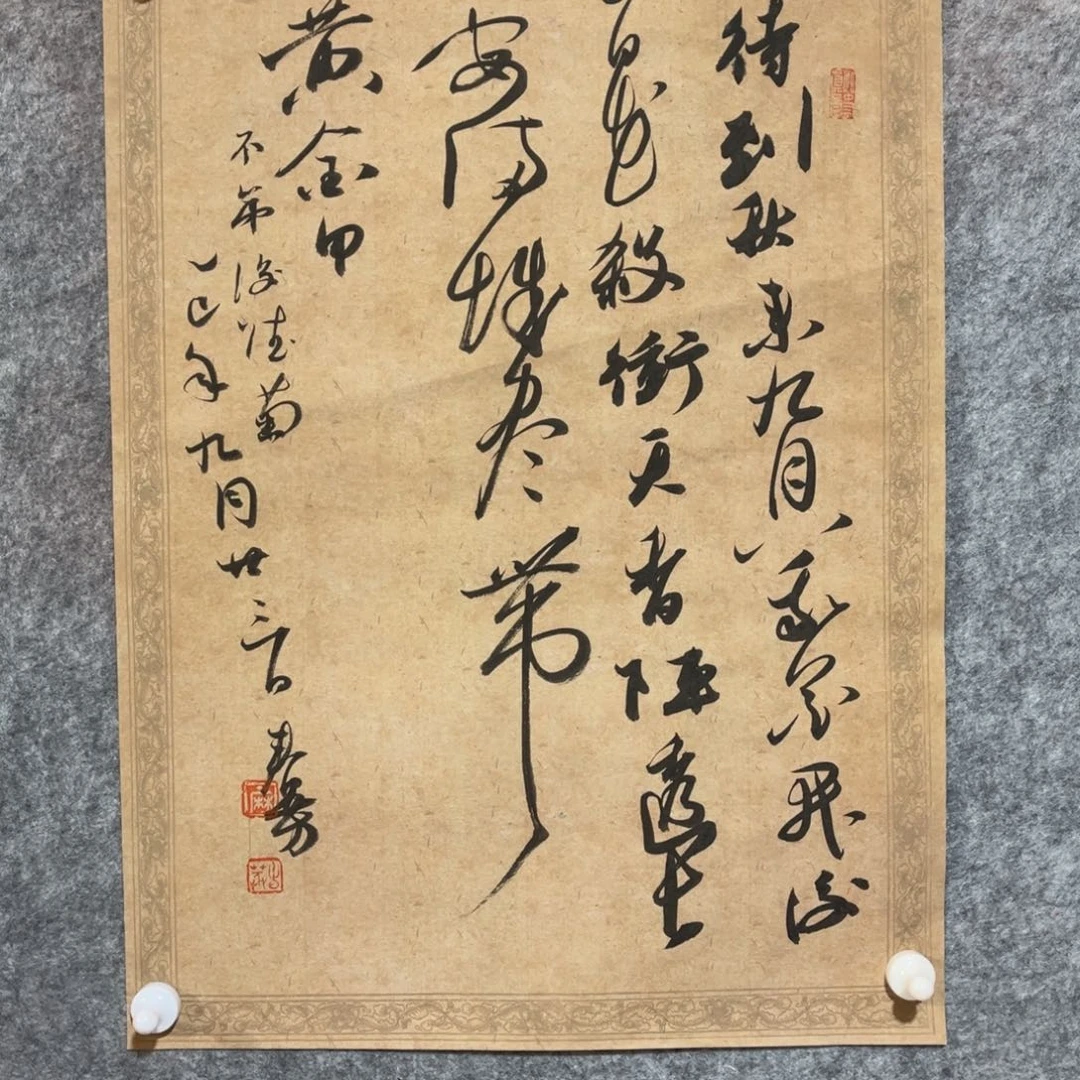 待到秋来九月八我花開後
百花殺衝天香陣透長
安满城尽带
黄金甲
不第後赋菊
乙巳年九月廿三日